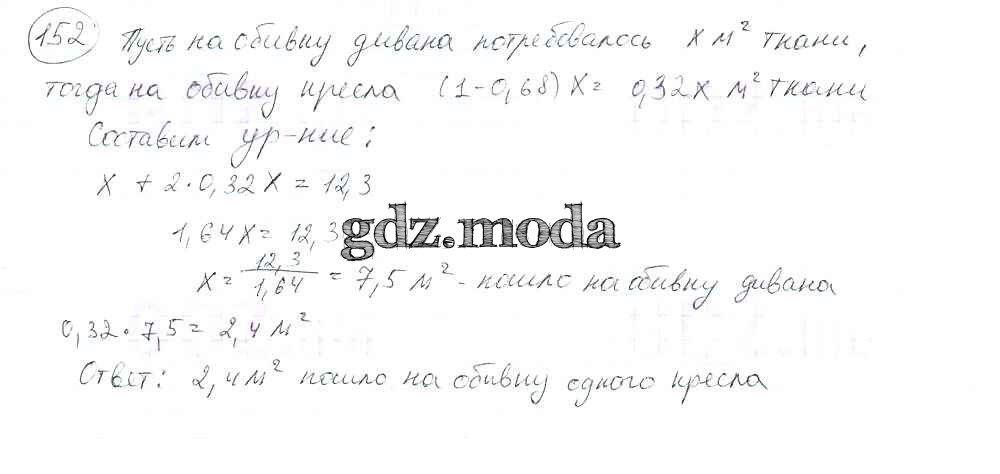 152 Пусть на обивку дивана потребовалось x м² ткани,
тогда на обивку кресла (1-0,68)x= 0,32x м² ткани
Составим ур-ние:
x + 2·0,32x = 12,3
1,64x= 12,3
gdz.moda
x= 12,3/1,64 = 7,5 м² - пошло на обивку дивана
0,32·7,5= 2,4 м²
Ответ: 2,4 м² пошло на обивку одного кресла